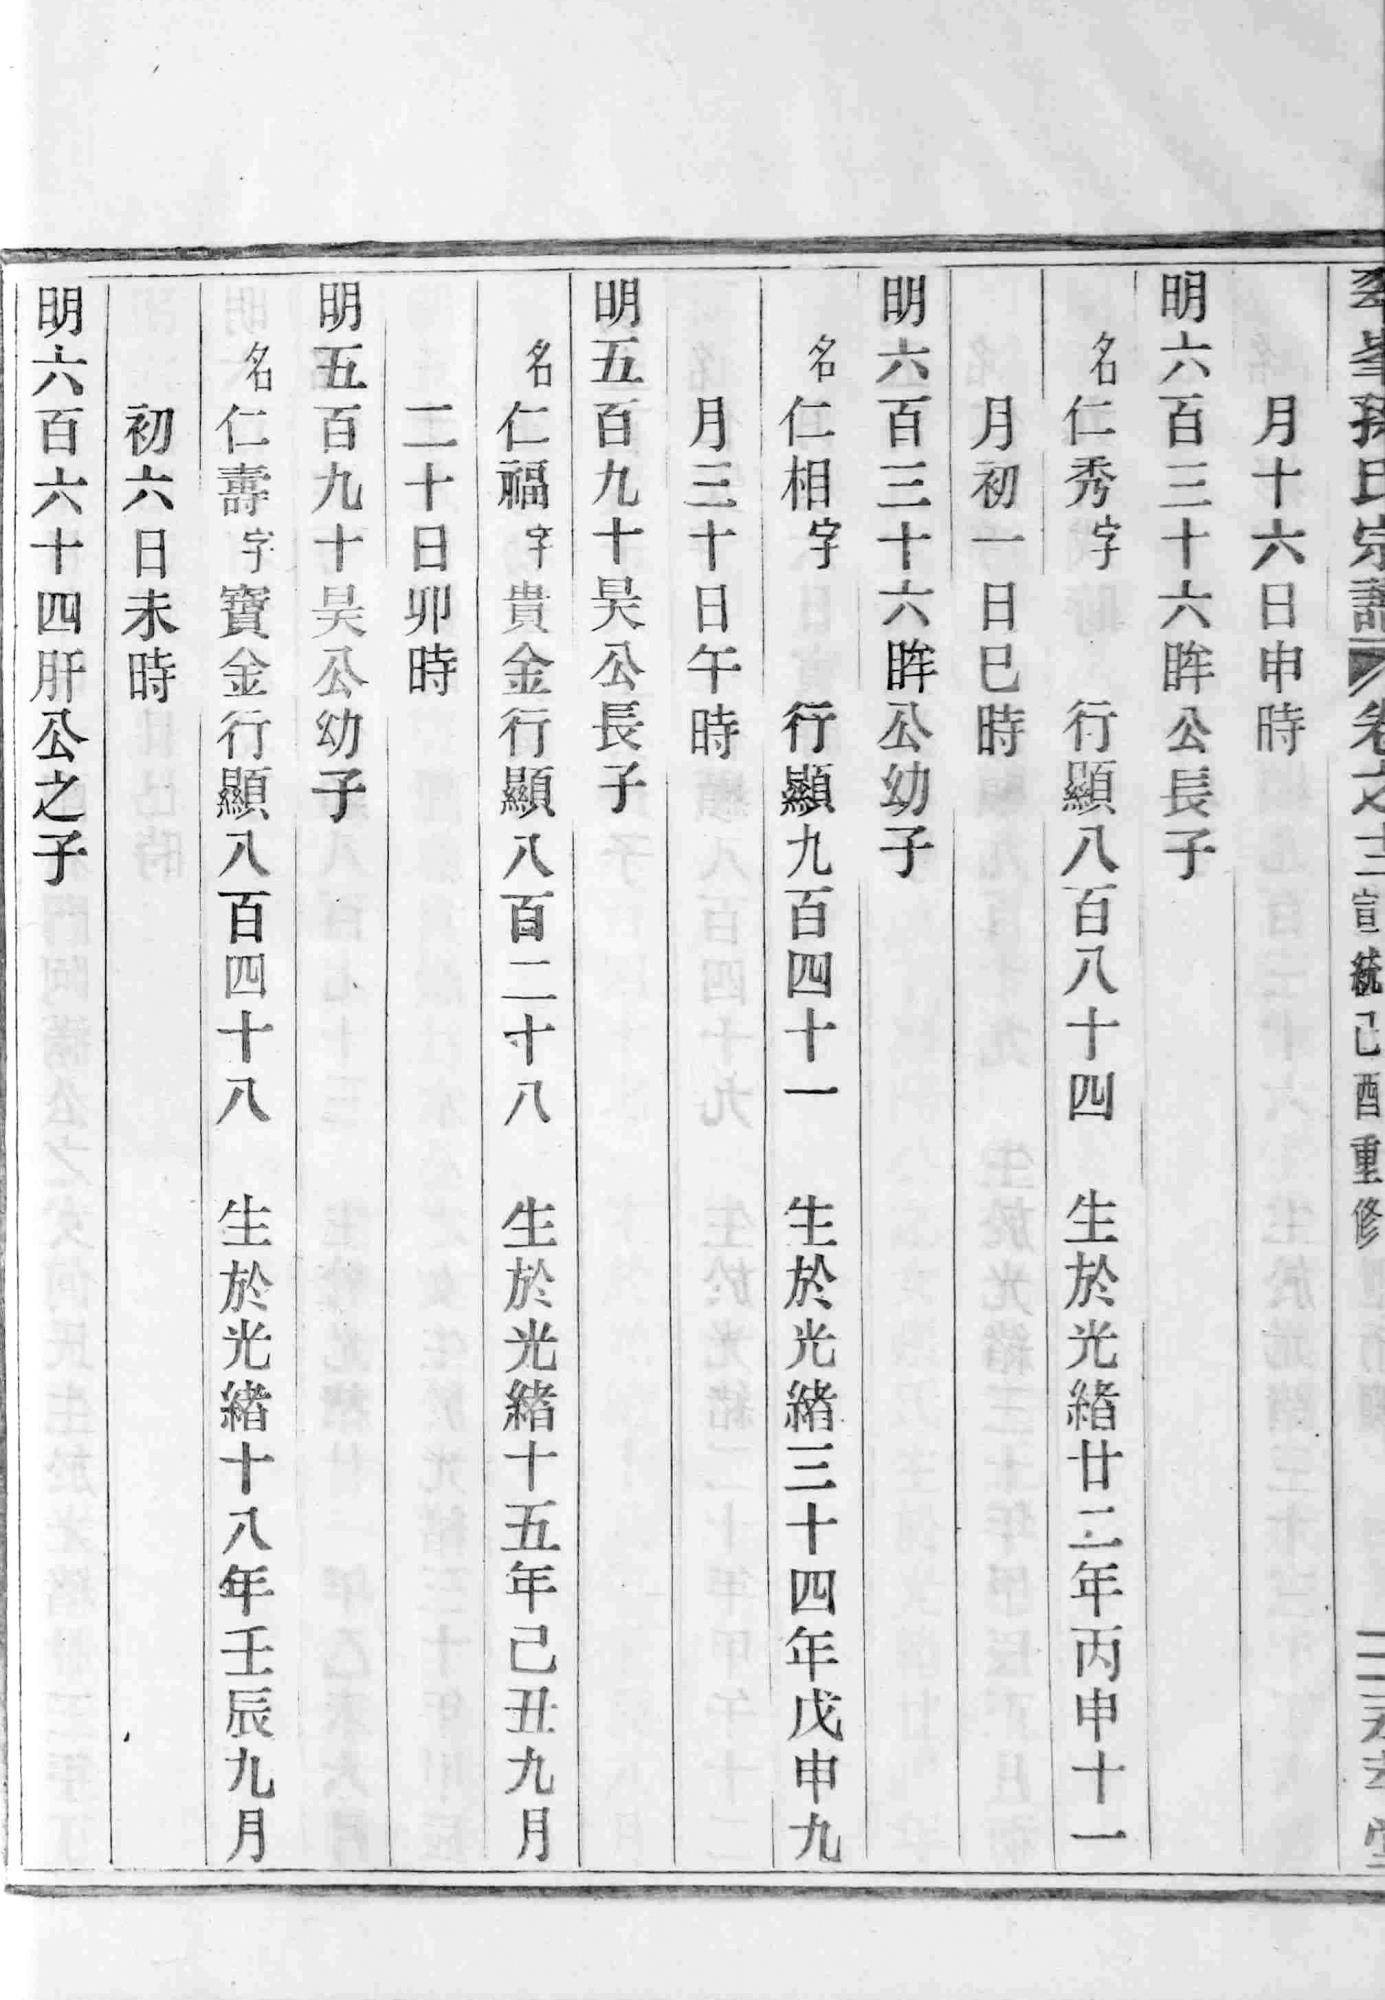 孫氏宗譜 卷之十三 宣統己酉重修
月十六日申時
明六百三十六眸公長子
名仁秀字 行顯八百八十四 生於光緒廿二年丙申十一
月初一日巳時
明六百三十六眸公幼子
名仁相字 行顯九百四十一 生於光緒三十四年戊申九
月三十日午時
明五百九十昊公長子
名仁福字貴金行顯八百二十八 生於光緒十五年己丑九月
二十日卯時
明五百九十昊公幼子
名仁壽字寶金行顯八百四十八 生於光緒十八年壬辰九月
初六日未時
明六百六十四肝公之子